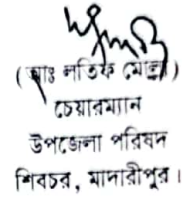 (মোঃ লতিফ মোল্লা)
চেয়ারম্যান
উপজেলা পরিষদ
শিবচর, মাদারীপুর।